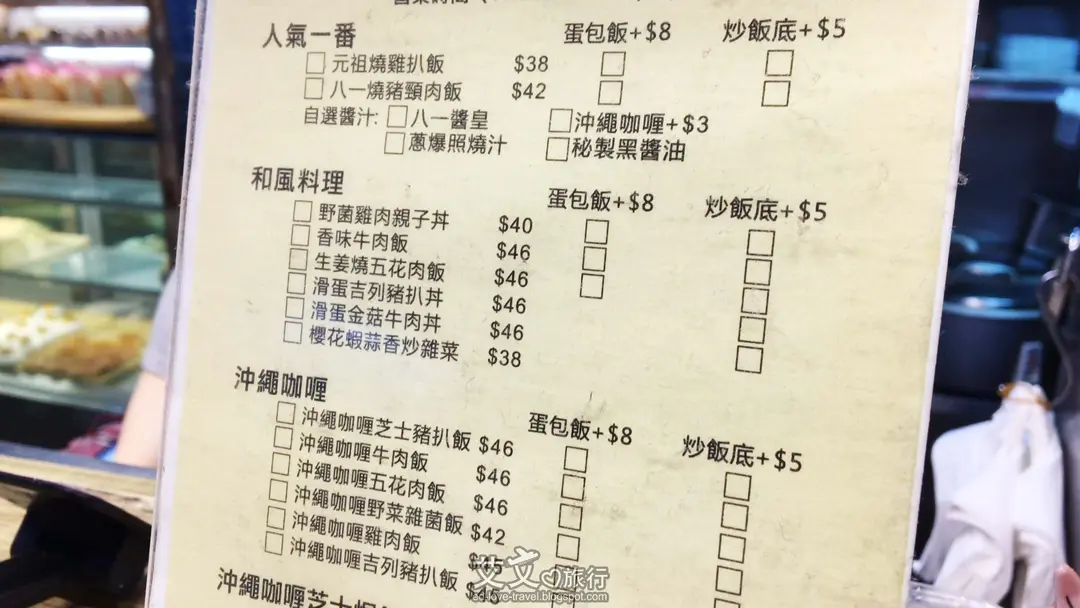 人氣一番 蛋包飯+$8 炒飯底+$5
元祖燒雞扒飯 $38
八一燒豬頸肉飯 $42
自選醬汁: 八一醬皇 沖繩咖喱+$3
蔥爆照燒汁 秘製黑醬油
和風料理 蛋包飯+$8 炒飯底+$5
野菌雞肉親子丼 $40
香味牛肉飯 $46
生姜燒五花肉飯 $46
滑蛋吉列豬扒丼 $46
滑蛋金菇牛肉丼 $46
櫻花蝦蒜香炒雜菜 $38
沖繩咖喱 蛋包飯+$8 炒飯底+$5
沖繩咖喱芝士豬扒飯 $46
沖繩咖喱牛肉飯 $46
沖繩咖喱五花肉飯 $46
沖繩咖喱野菜雜菌飯 $42
沖繩咖喱雞肉飯
沖繩咖喱吉列豬扒飯
沖繩咖喱芝士
艾文の旅行
ed-love-travel.blogspot.com